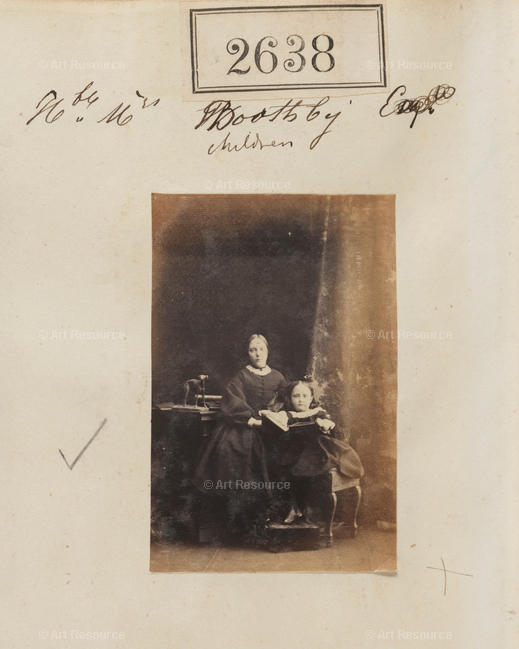 © Art Resource © Art Resource
2638
Hble. Mrs Boothby
children
© Art Resource
© Art Resource © Art Resource
© Art Resource
© Art Resource © Art Resource